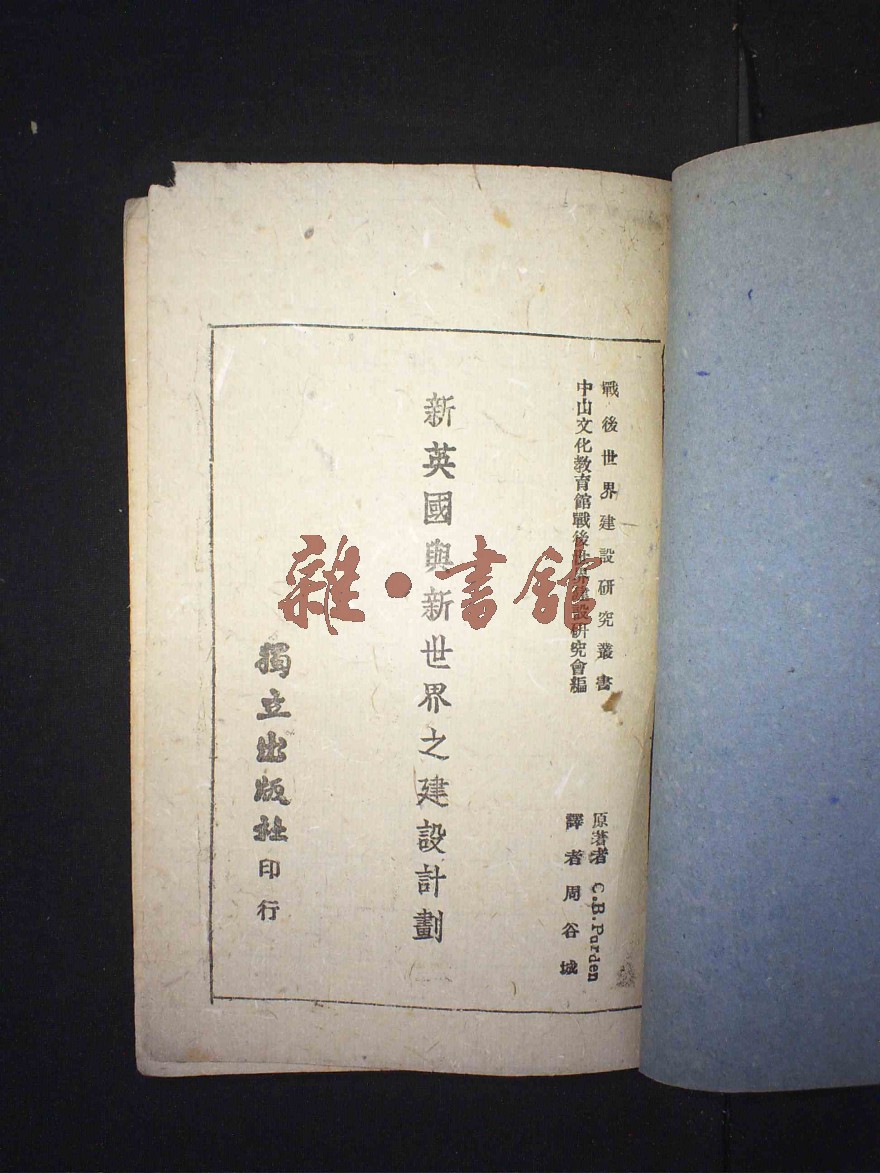 戰後世界建設研究叢書
中山文化教育館戰後世界建設研究會編
原著者 C.B.Purden
譯者周谷城
新英國與新世界之建設計劃
獨立出版社印行
雜·書館